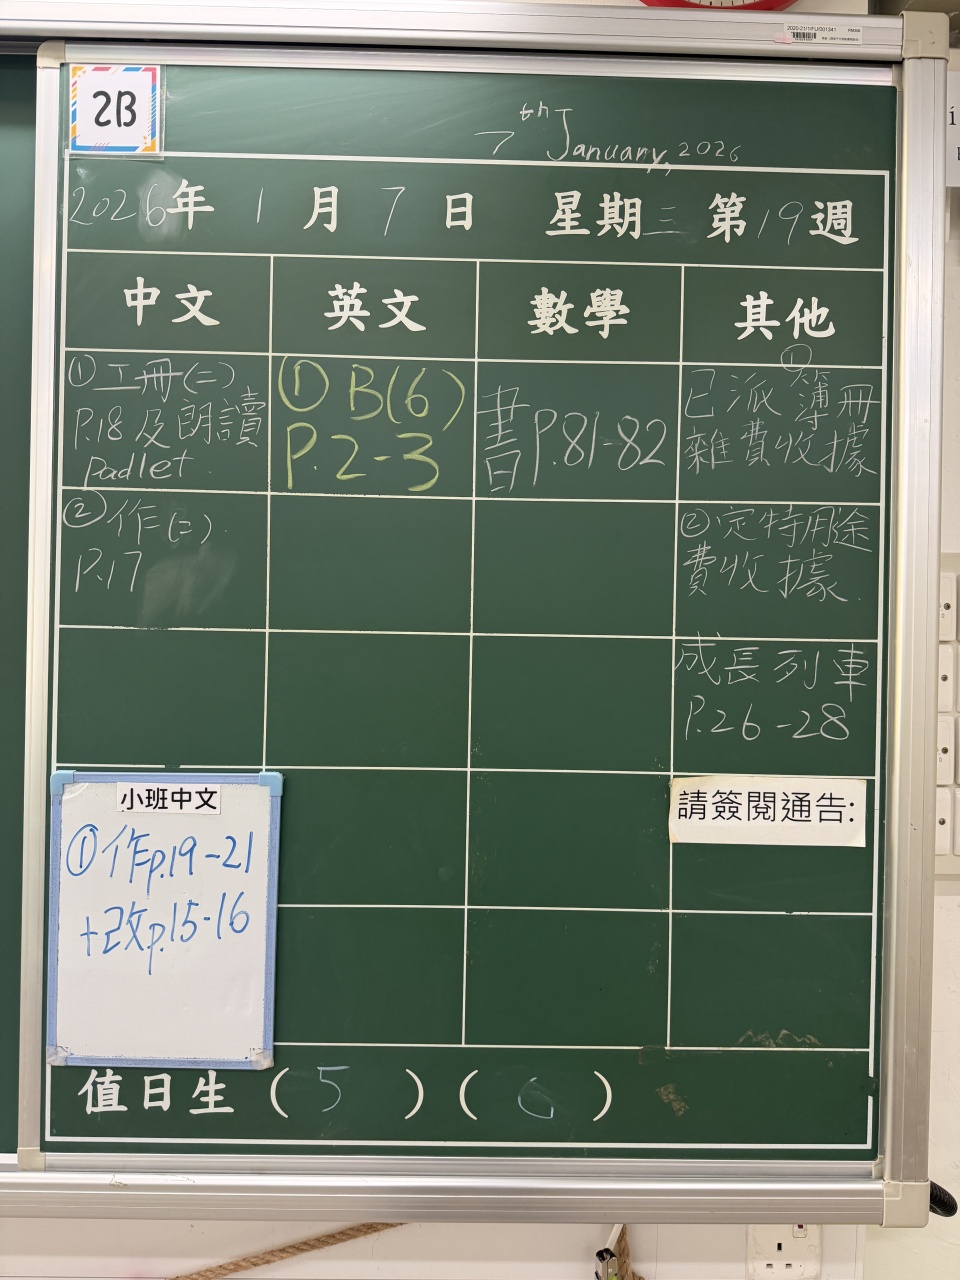 2020-21/1/FU/001341
2B
7th January, 2026
2026年 1 月 7 日 星期三 第19週
中文 英文 數學 其他
①工冊(二)
P.18及朗讀
padlet
① B(6)
P.2-3
書P.81-82
①
已派簿冊
雜費收據
②作(二)
P.17
②定特用途
費收據
成長列車
P.26-28
小班中文
①作p.19-21
+改p.15-16
請簽閱通告:
值日生 ( 5 ) ( 6 )